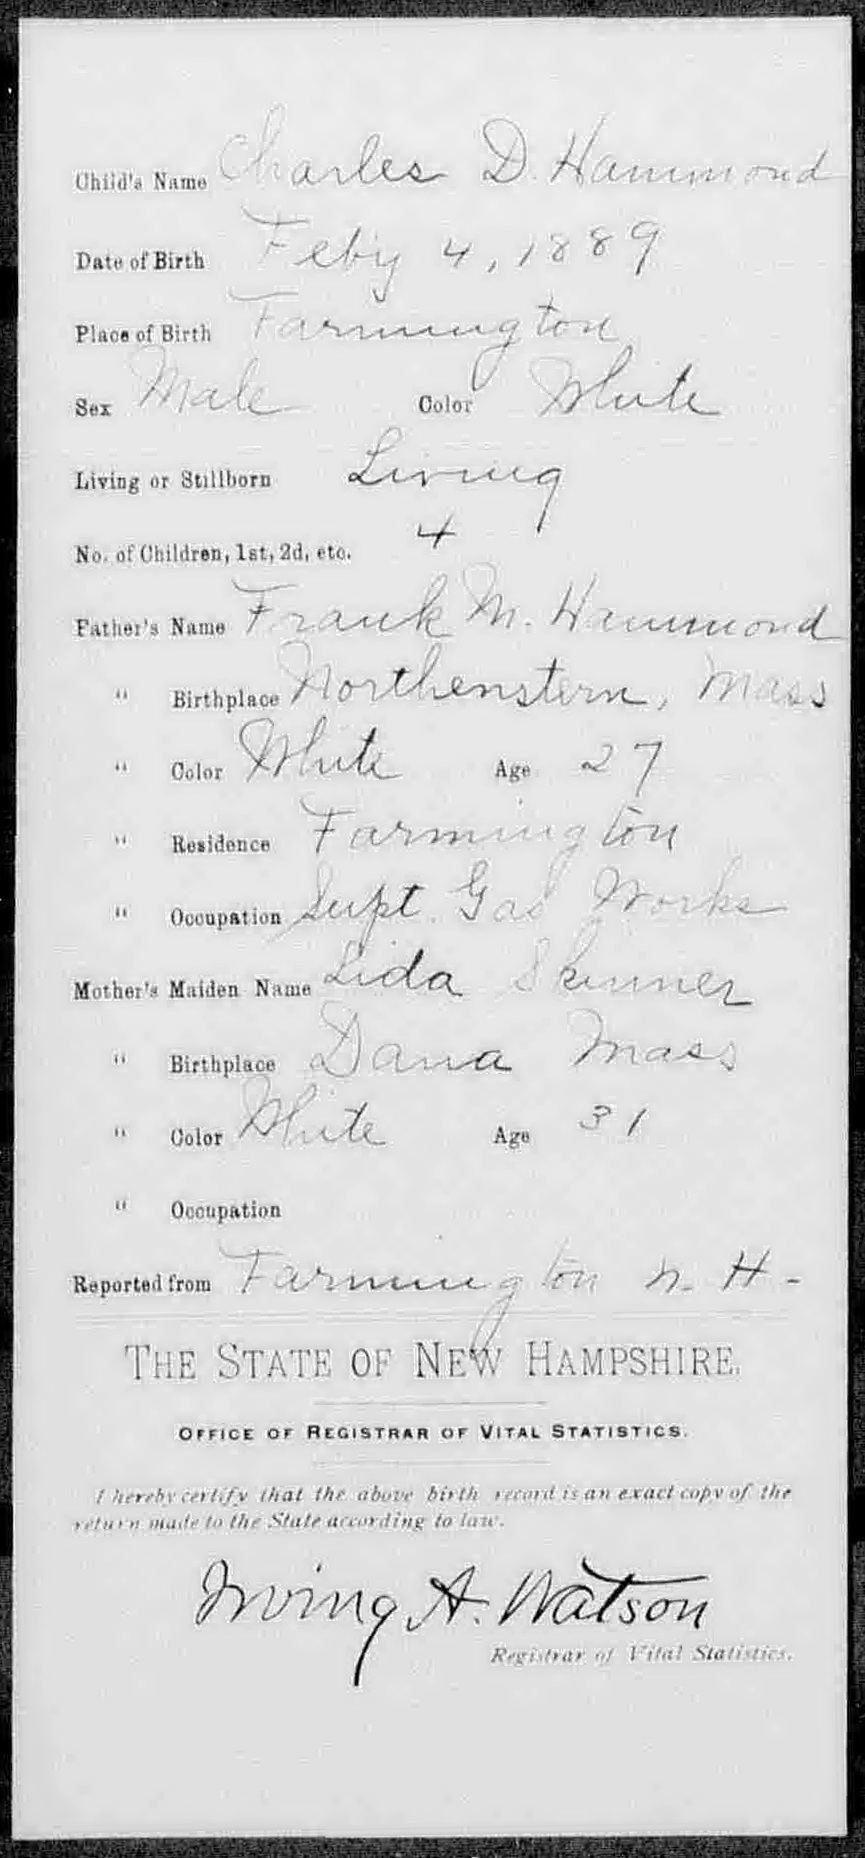 Child's Name Charles D. Hammond
Date of Birth Feby 4, 1889
Place of Birth Farmington
Sex Male Color White
Living or Stillborn Living
No. of Children, 1st, 2d, etc. 4
Father's Name Frank M. Hammond
" Birthplace Northenstern, Mass
" Color White Age 27
" Residence Farmington
" Occupation Supt. Gas Works
Mother's Maiden Name Lida Skinner
" Birthplace Dana Mass
" Color White Age 31
" Occupation
Reported from Farmington N. H-
THE STATE OF NEW HAMPSHIRE.
OFFICE OF REGISTRAR OF VITAL STATISTICS.
I hereby certify that the above birth record is an exact copy of the
return made to the State according to law.
Irving A. Watson
Registrar of Vital Statistics.